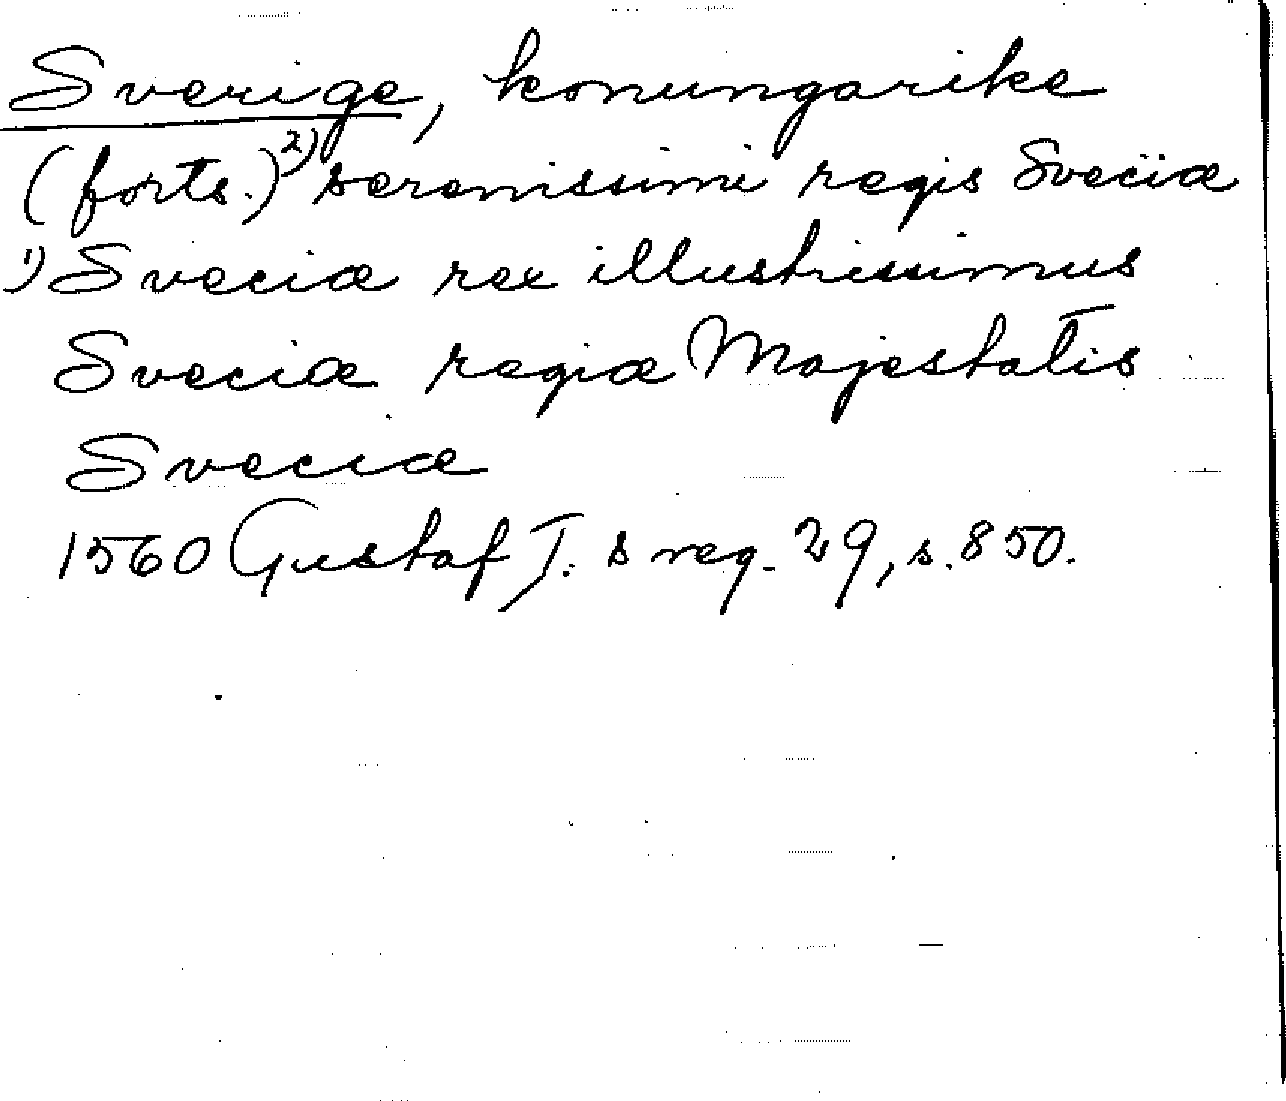 Sverige, konungarike
(forts.) 2) serenissimi regis Sveciæ
1) Sveciæ rex illustrissimus
Sveciæ regiæ Majestatis
Sveciæ
1560 Gustaf I:s reg. 29, s. 850.